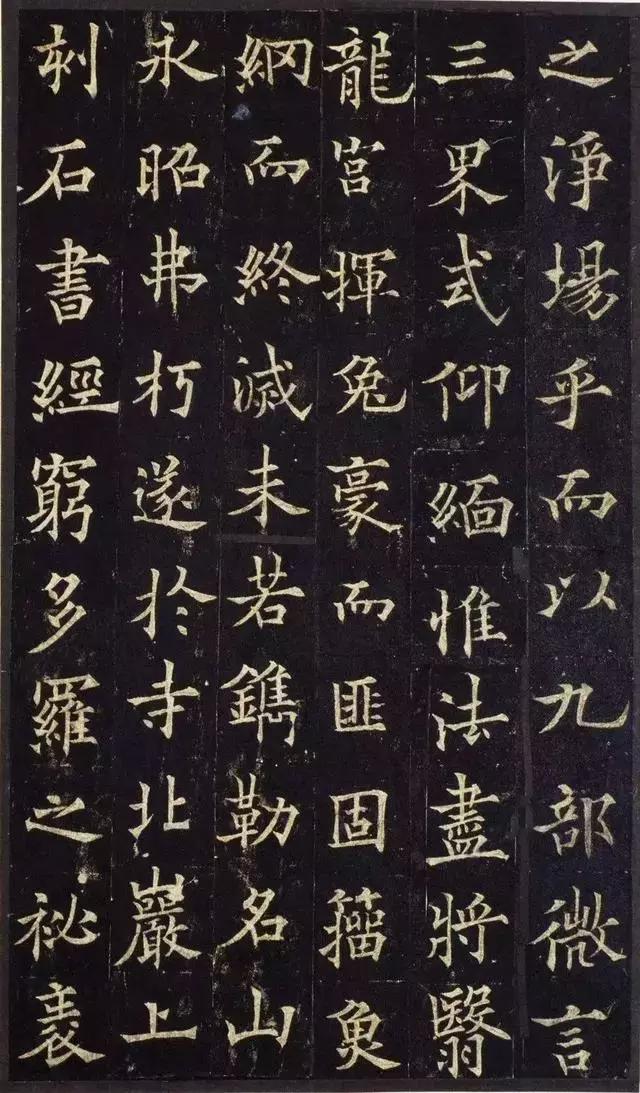 之淨場乎而以九部微言
三界式仰緬惟法盡將翳
龍宮揮兔豪而匪固籀魚
網而終滅未若鐫勒名山
永昭弗朽遂於寺北巖上
刻石書經窮多羅之祕袠